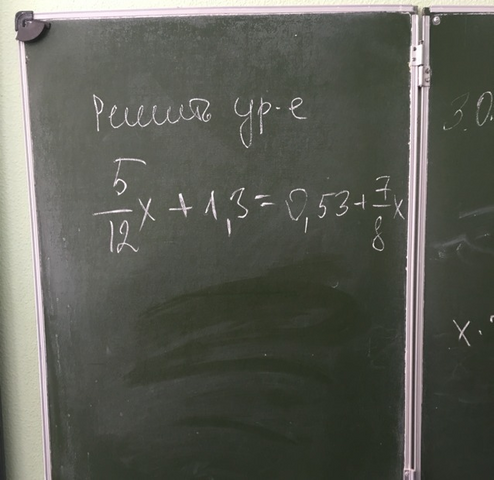 Решить ур-е
5/12 x + 1,3 = 0,53 + 7/8 x
3.0.
x.